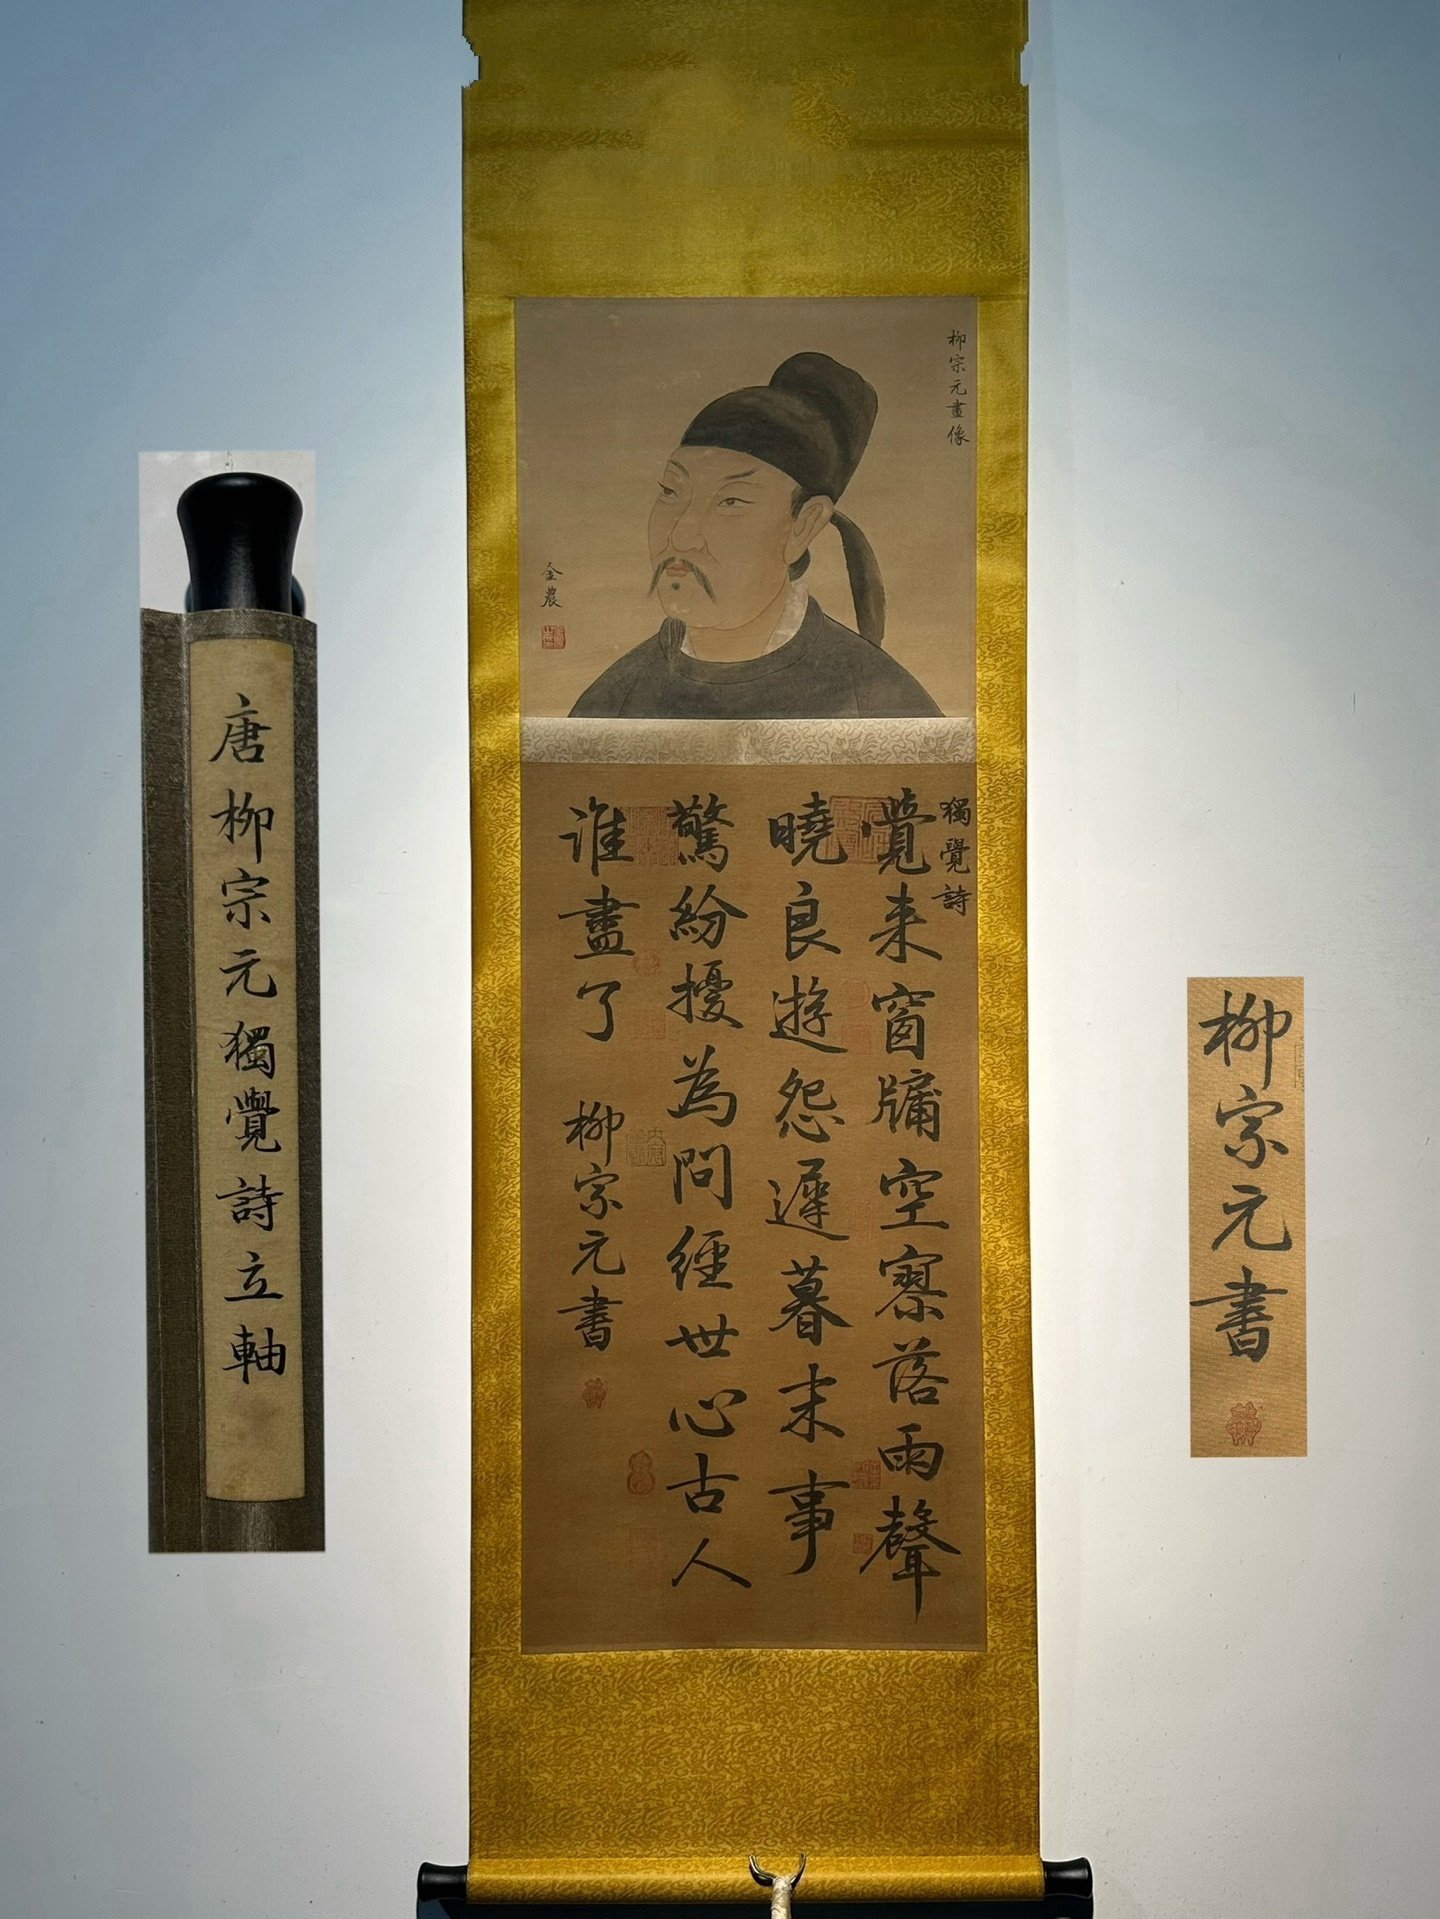 唐柳宗元獨覺詩立軸
柳宗元畫像
金農
獨覺詩
覺来窗牖空寥落雨聲
曉良遊怨遲暮末事
驚紛擾為問經世心古人
誰盡了
柳宗元書
柳宗元書